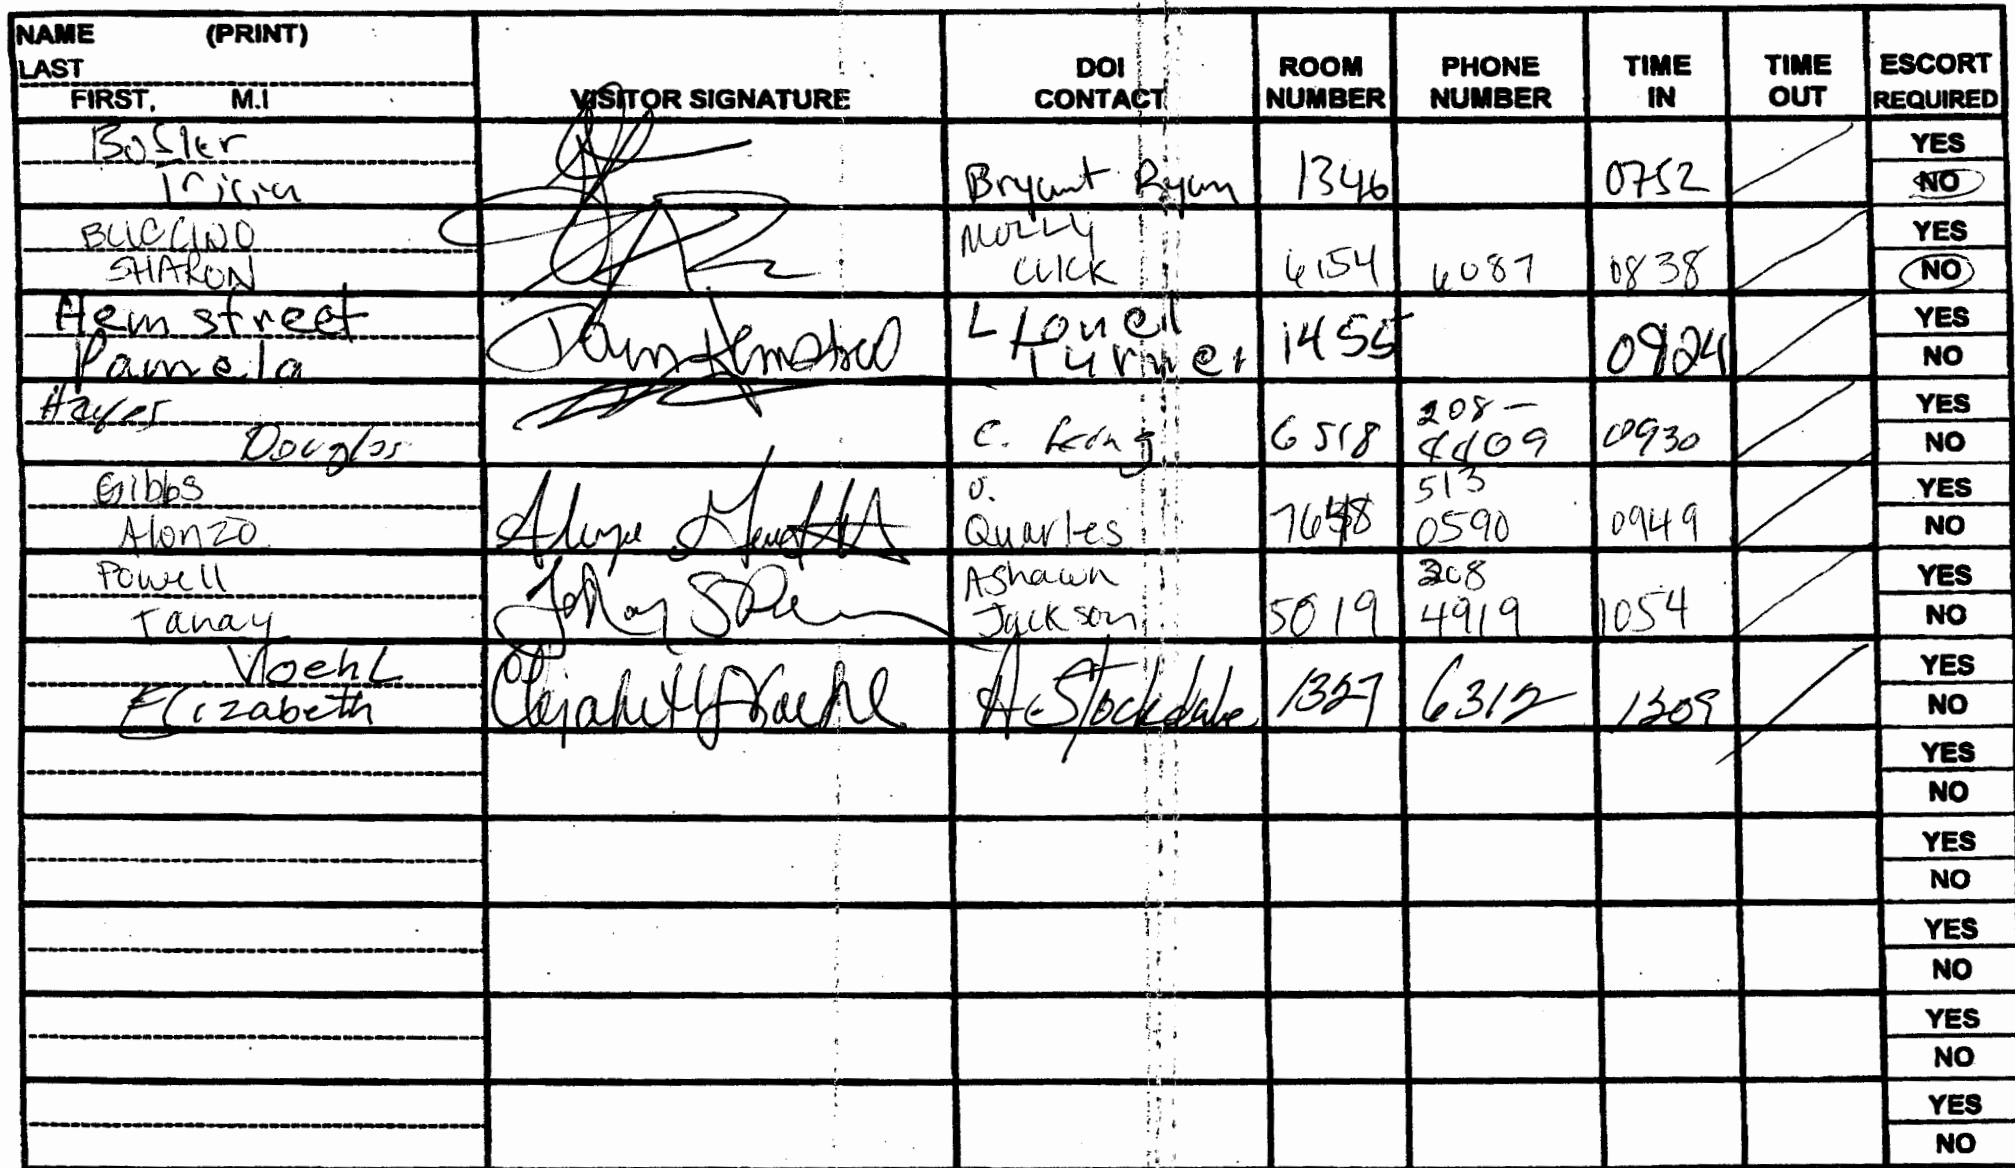 NAME (PRINT)
LAST
FIRST, M.I
VISITOR SIGNATURE
DOI CONTACT
ROOM NUMBER
PHONE NUMBER
TIME IN
TIME OUT
ESCORT REQUIRED
Bosler
Bryant Ryan 1346 0752
YES
NO
BUCCINO MOLLY
SHARON CLICK 6154 6087 0838
YES
NO
Hemstreet
Pamela Pam Turner 1455 0924
YES
NO
Hayes 208-
Douglas C. 6518 4409 0930
YES
NO
Gibbs 513
Alonzo Quarles 0590 0949
YES
NO
Powell Ashawn 208
Tanay Jackson 5019 4919 1054
YES
NO
Voehl
Elizabeth Elizabeth Voehl A. Stockdale 1327 6312 1309
YES
NO
YES
NO
YES
NO
YES
NO
YES
NO
YES
NO